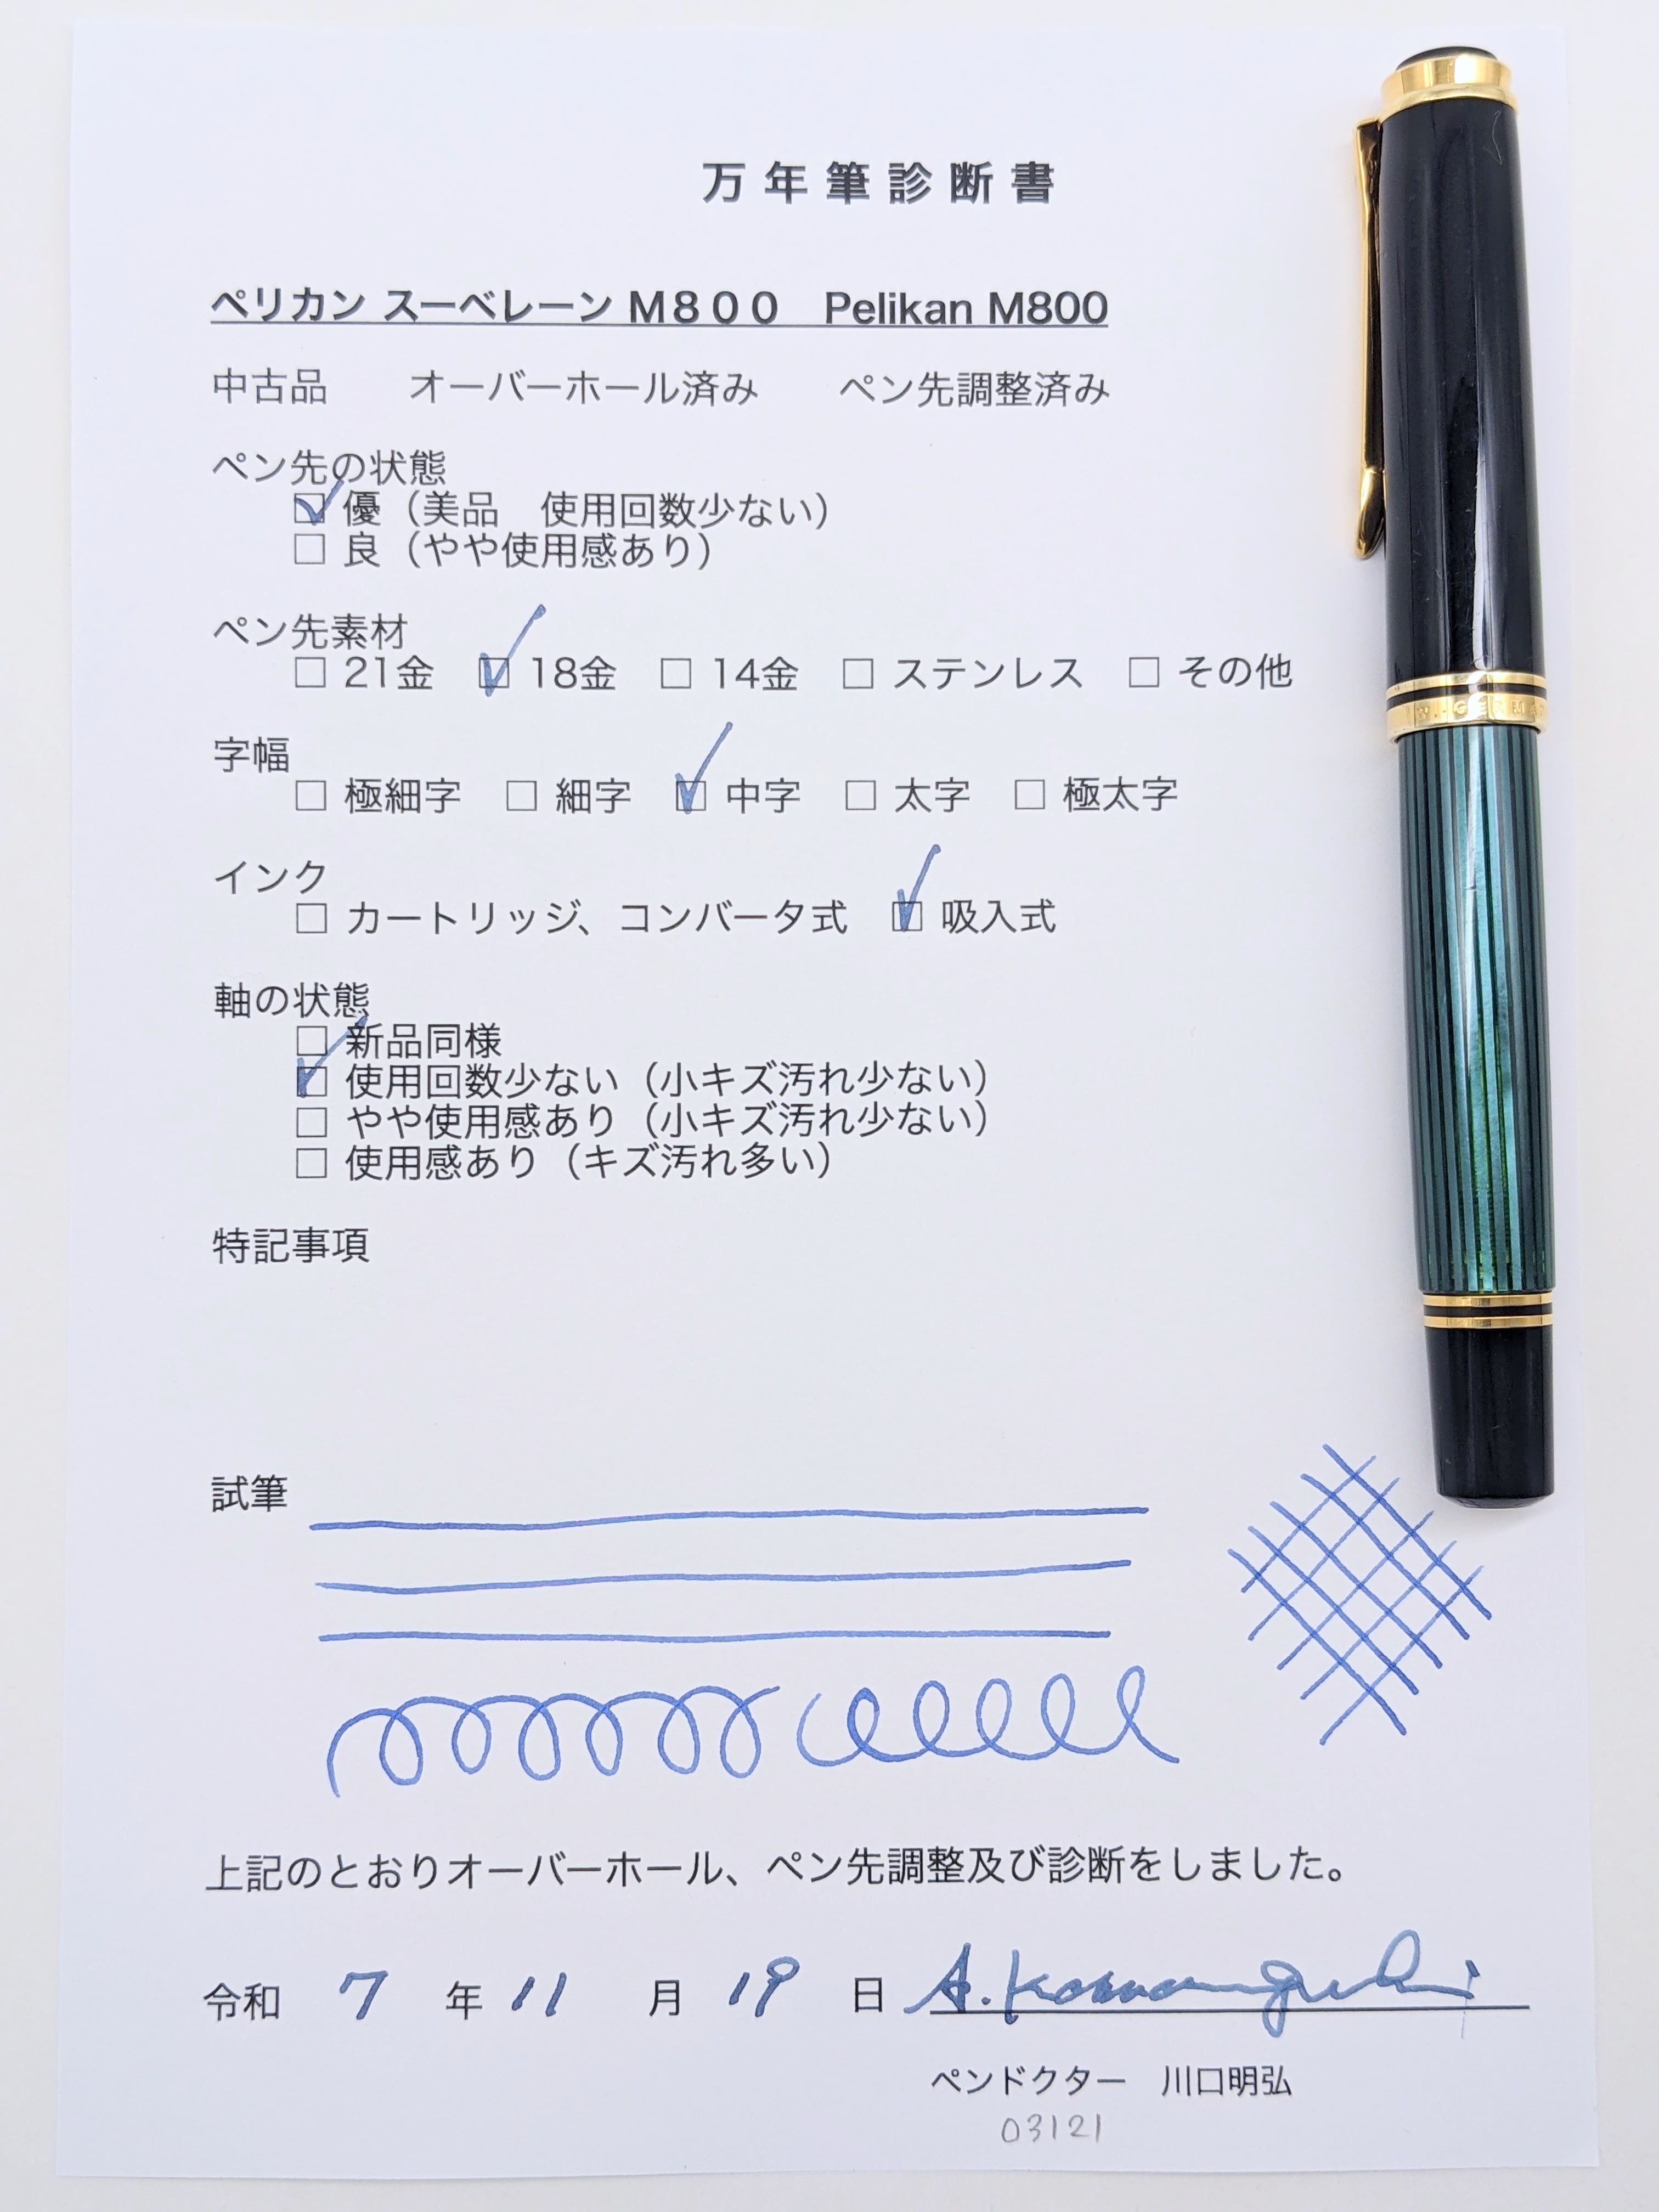 万年筆診断書
ペリカン スーベレーン M８００　Pelikan M800
中古品　　オーバーホール済み　　ペン先調整済み
ペン先の状態
☑ 優（美品　使用回数少ない）
□ 良（やや使用感あり）
ペン先素材
□ 21金　☑ 18金　□ 14金　□ ステンレス　□ その他
字幅
□ 極細字　□ 細字　☑ 中字　□ 太字　□ 極太字
インク
□ カートリッジ、コンバータ式　☑ 吸入式
軸の状態
□ 新品同様
☑ 使用回数少ない（小キズ汚れ少ない）
□ やや使用感あり（小キズ汚れ少ない）
□ 使用感あり（キズ汚れ多い）
特記事項
試筆
上記のとおりオーバーホール、ペン先調整及び診断をしました。
令和 7 年 11 月 19 日 A. Kawaguchi
ペンドクター　川口明弘
03121